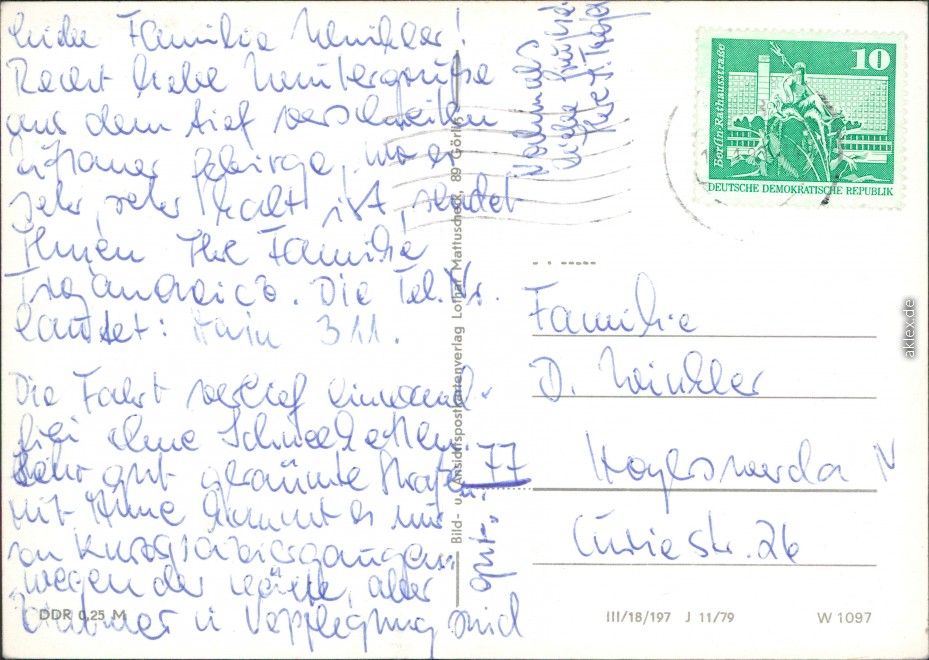 Liebe Familie Winkler!
Recht liebe Wintergrüße
aus dem tief verschneiten
Zittauer Gebirge, wo es
sehr, sehr kalt ist, sendet
Ihnen Ihre Familie
Die Tel. Nr.
lautet: Hain 311.
Die Fahrt verlief einwand-
frei ohne Schneeketten.
Sehr gut geräumte Straßen.
Mit Anne kommt es nur
zu Kurzspaziergängen
wegen der Kälte, aber
Zimmer u. Verpflegung sind
gut.
Nochmals
viele Grüße
Ihre
10
Berlin-Rathausstraße
DEUTSCHE DEMOKRATISCHE REPUBLIK
Familie
D. Winkler
77 Hoyerswerda N
Curiestr. 26
Bild- u. Ansichtspostkartenverlag Lothar Mattuscheck, 89 Görlitz
DDR 0,25 M
III/18/197 J 11/79
W 1097
aklex.de